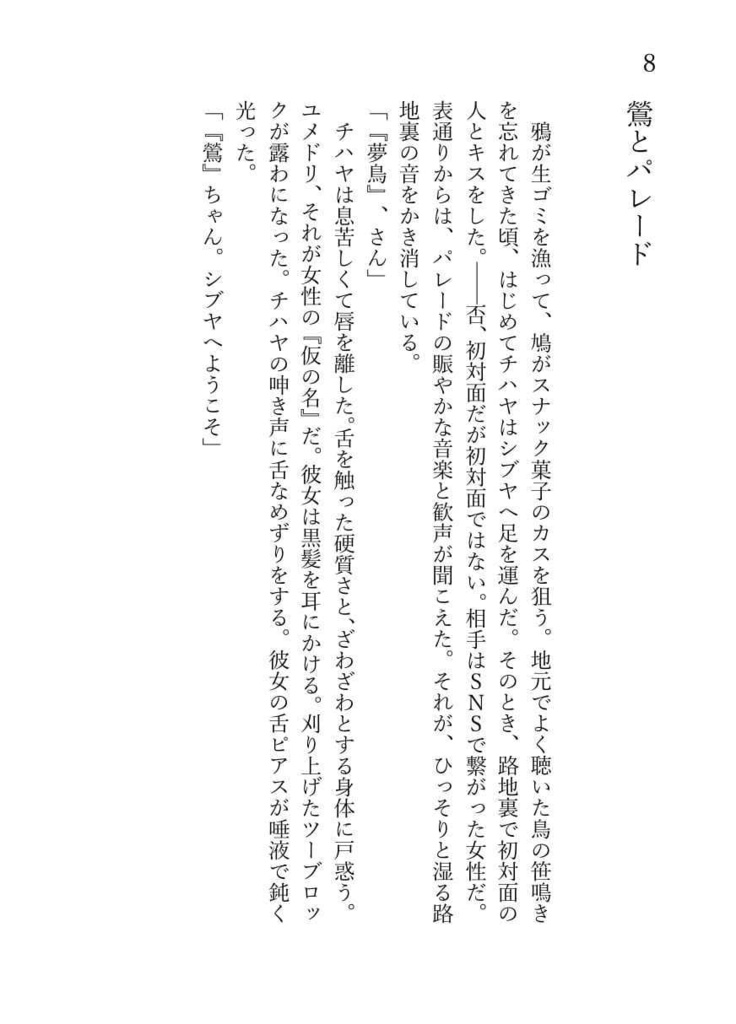 8
鶯とパレード
　鴉が生ゴミを漁って、鳩がスナック菓子のカスを狙う。地元でよく聴いた鳥の笹鳴き
を忘れてきた頃、はじめてチハヤはシブヤへ足を運んだ。そのとき、路地裏で初対面の
人とキスをした。――否、初対面だが初対面ではない。相手はＳＮＳで繋がった女性だ。
表通りからは、パレードの賑やかな音楽と歓声が聞こえた。それが、ひっそりと湿る路
地裏の音をかき消している。
「『夢鳥』、さん」
　チハヤは息苦しくて唇を離した。舌を触った硬質さと、ざわざわとする身体に戸惑う。
ユメドリ、それが女性の『仮の名』だ。彼女は黒髪を耳にかける。刈り上げたツーブロッ
クが露わになった。チハヤの呻き声に舌なめずりをする。彼女の舌ピアスが唾液で鈍く
光った。
「『鶯』ちゃん。シブヤへようこそ」